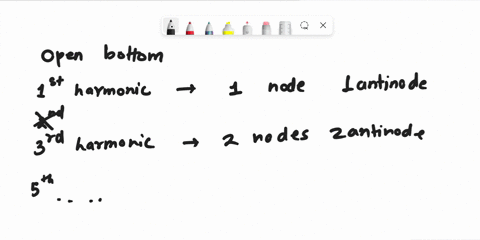 Open bottom
1st harmonic → 1 node 1antinode
nd
3rd harmonic → 2 nodes 2antinode
5th .. ..